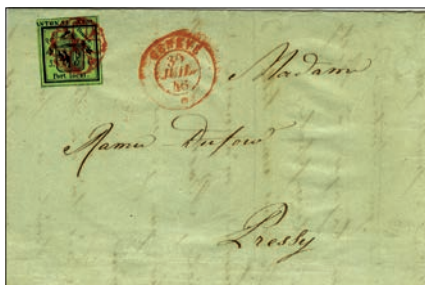 Port local.
GENÈVE
30
JUIL.
46
Madame
Ramu Dufour
Pressy